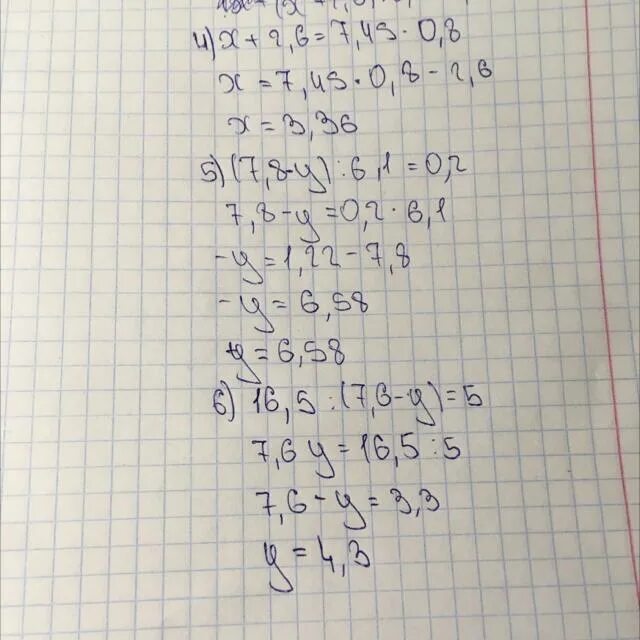 4) x + 2,6 = 7,45 · 0,8
x = 7,45 · 0,8 - 2,6
x = 3,36
5) (7,8 - y) : 6,1 = 0,2
7,8 - y = 0,2 · 6,1
- y = 1,22 - 7,8
- y = 6,58
y = 6,58
6) 16,5 : (7,6 - y) = 5
7,6 y = 16,5 : 5
7,6 - y = 3,3
y = 4,3